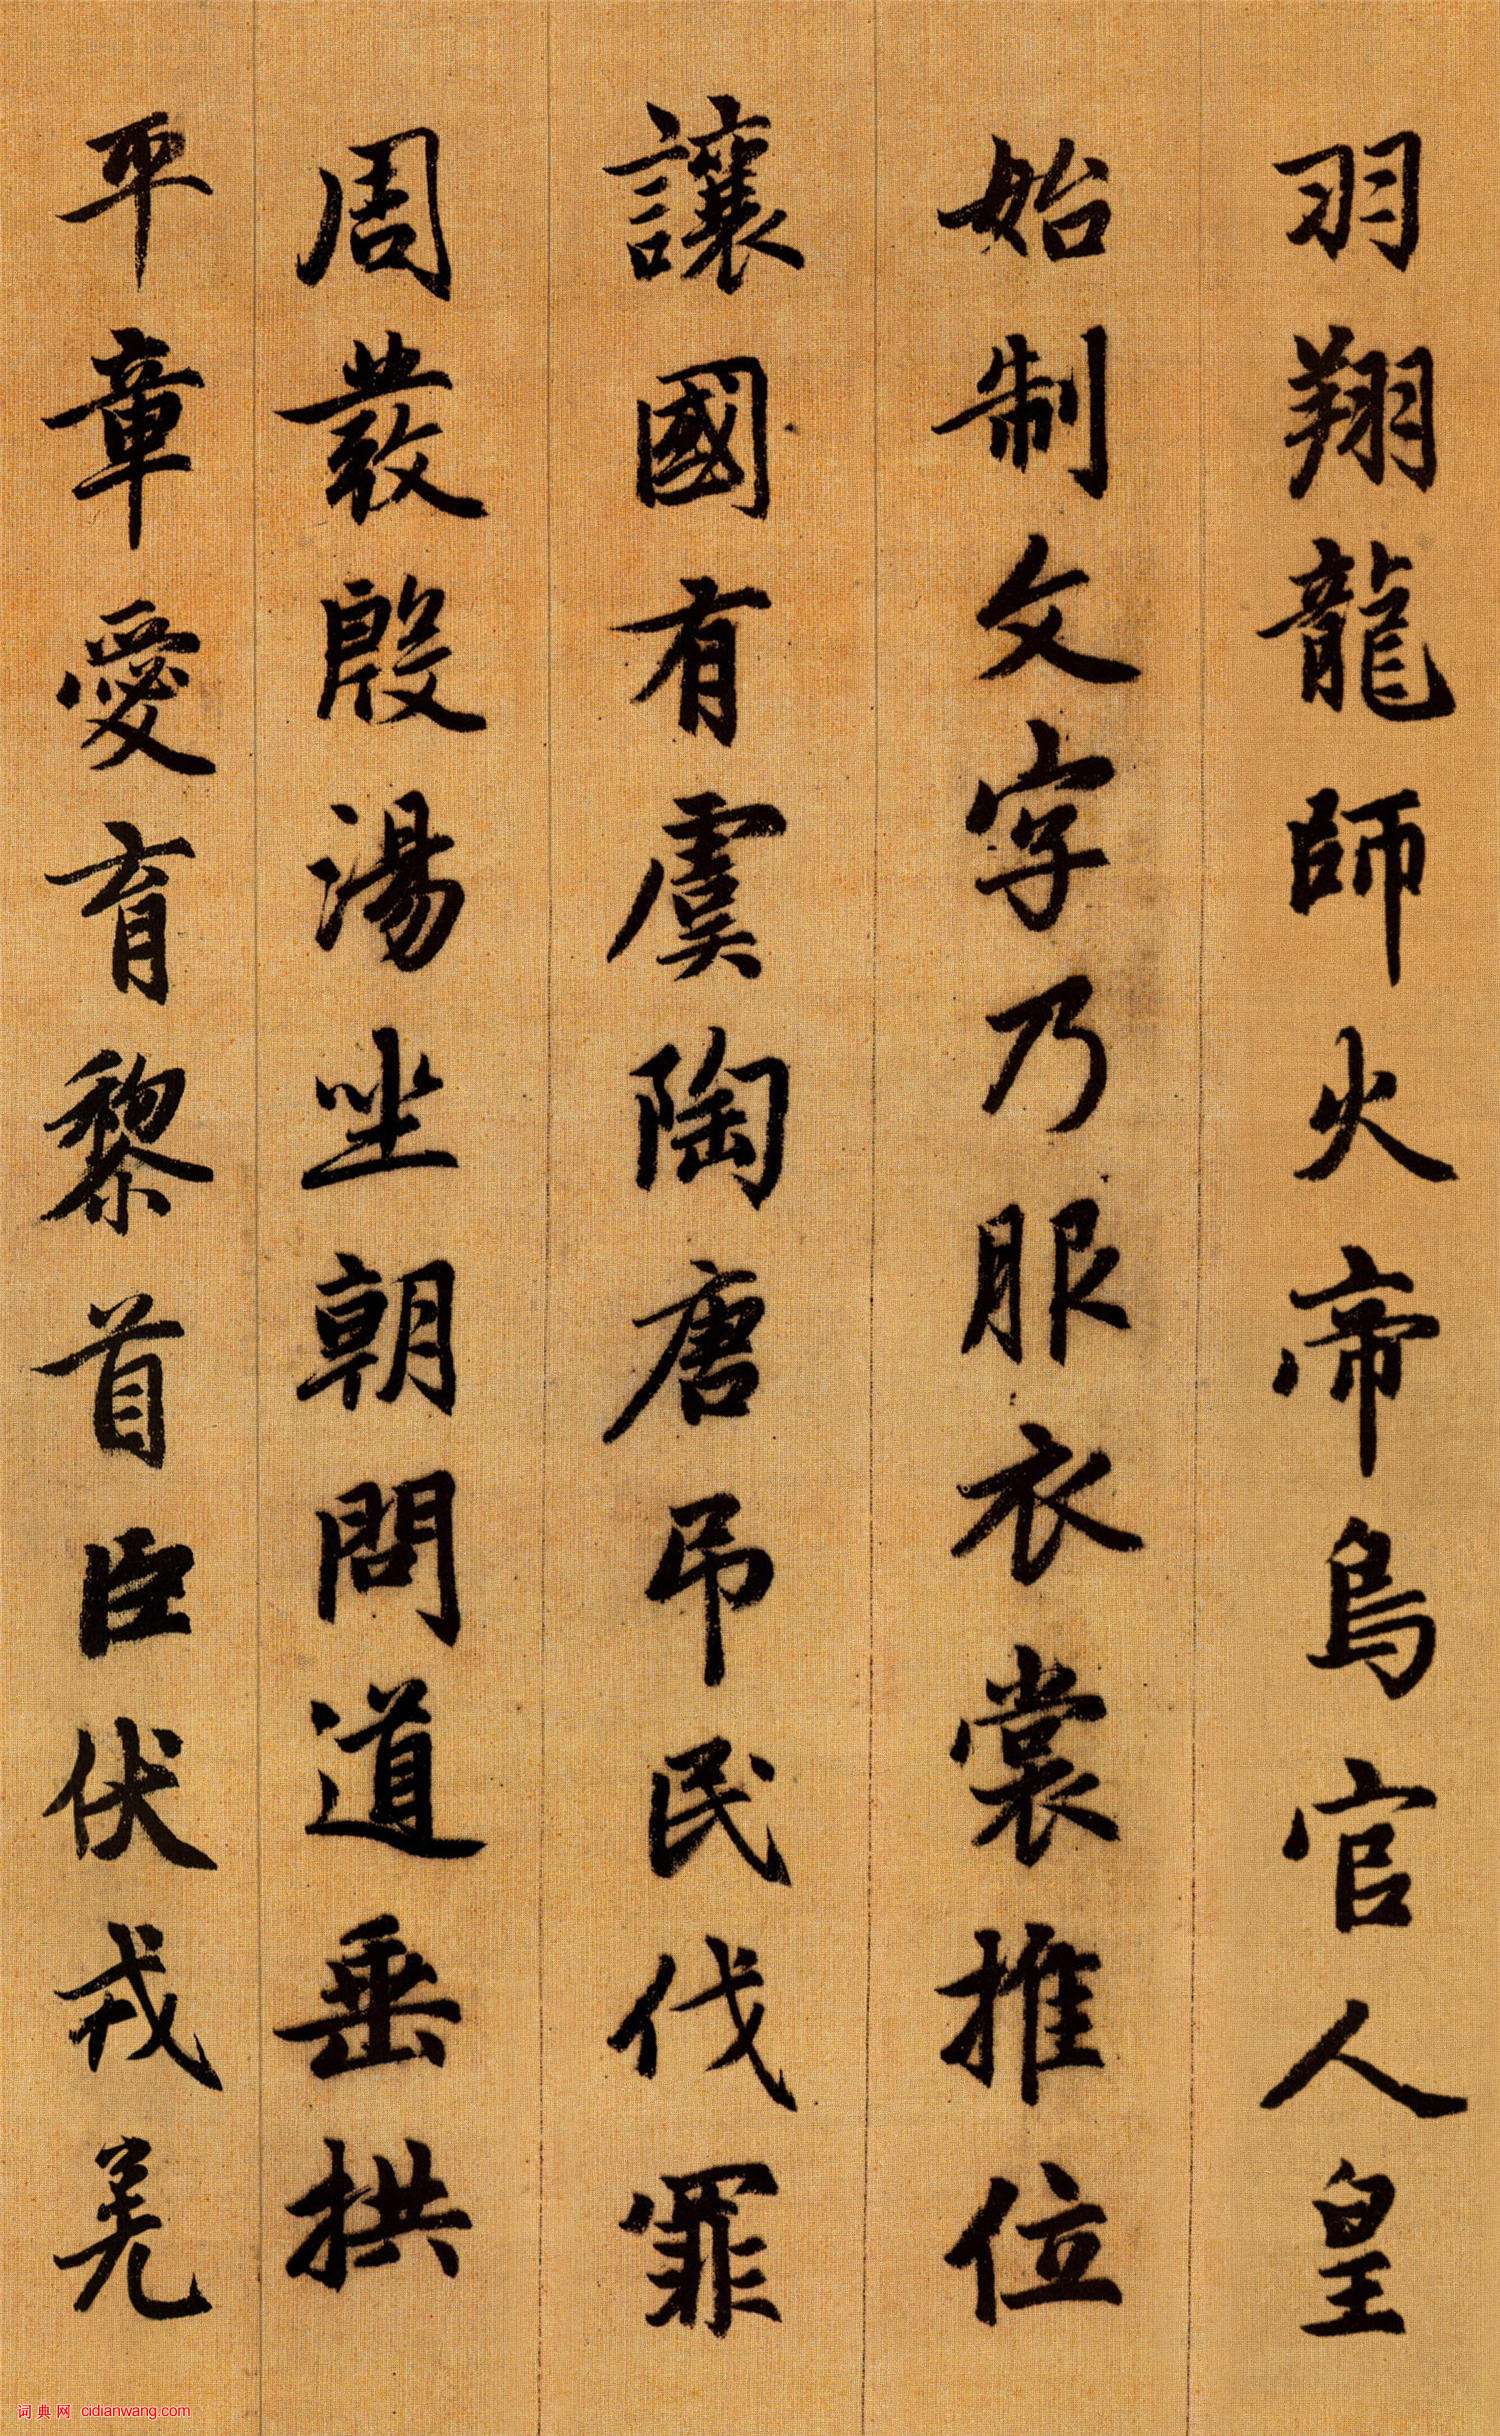 羽翔龍師火帝鳥官人皇
始制文字乃服衣裳推位
讓國有虞陶唐弔民伐罪
周發殷湯坐朝問道垂拱
平章愛育黎首臣伏戎羌
词典网 cidianwang.com